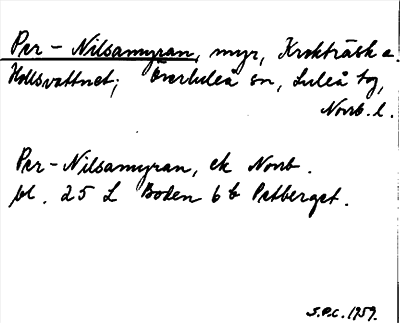 Per - Nilsamyran, myr, Krokträsk o.
Hollsvattnet; Överluleå sn, Luleå tg,
Norrb. l.
Per - Nilsamyran, ek Norrb.
bl. 25 L Boden 6 b Petberget.
S.P.C. 1959.